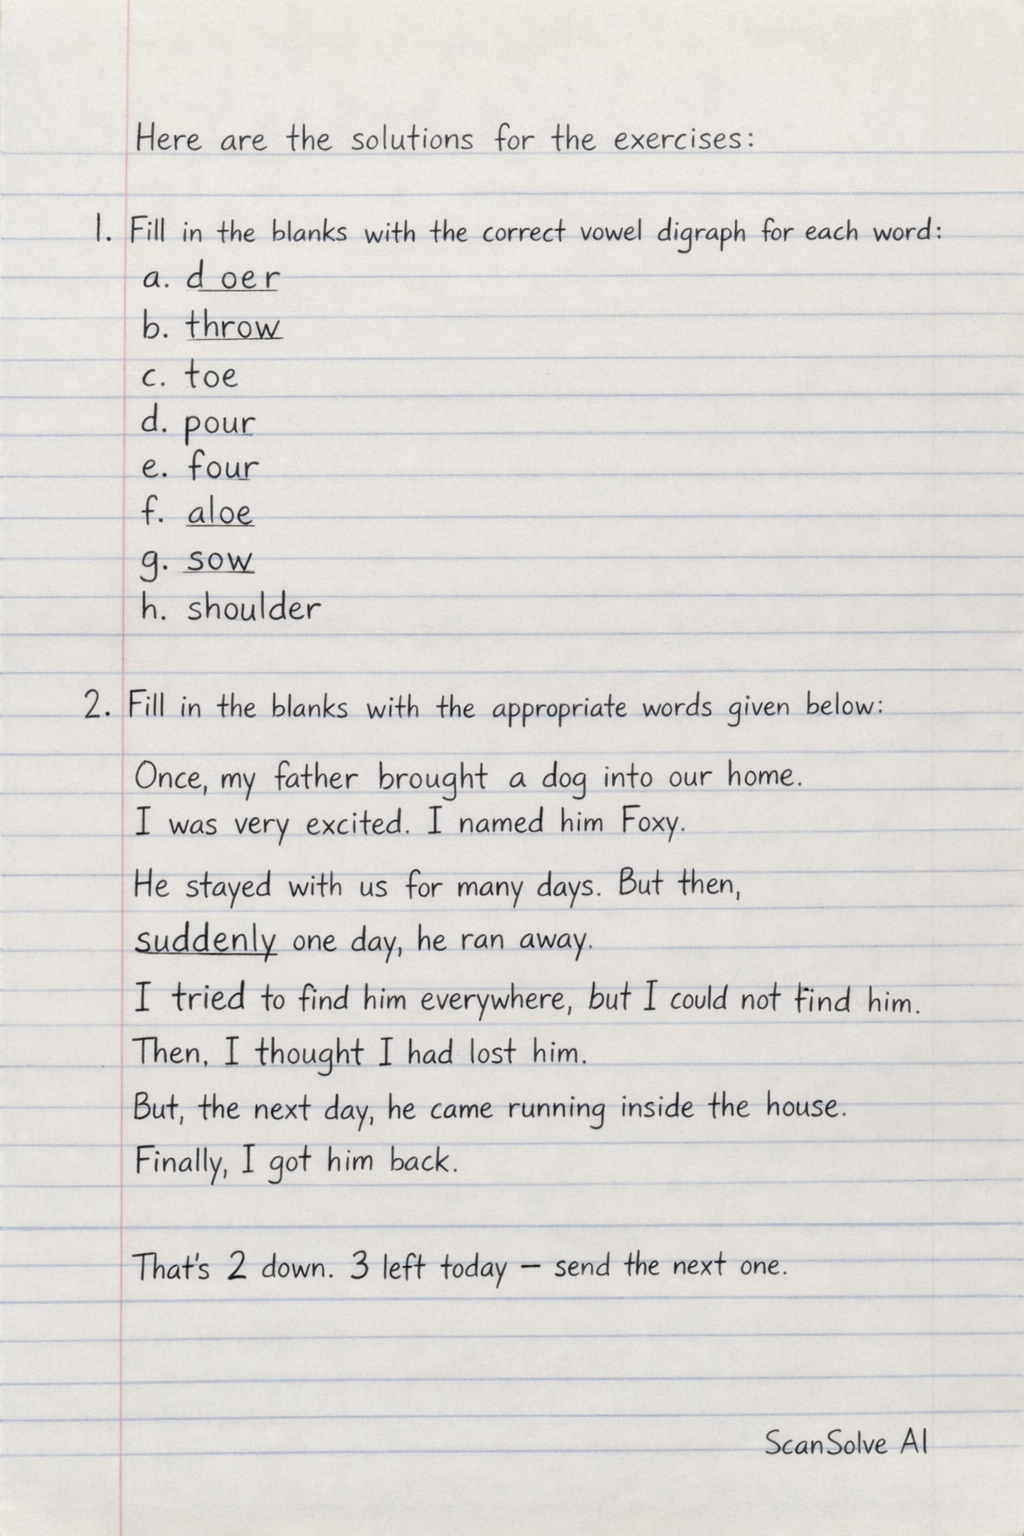 Here are the solutions for the exercises:
1. Fill in the blanks with the correct vowel digraph for each word:
a. d oer
b. throw
c. toe
d. pour
e. four
f. aloe
g. sow
h. shoulder
2. Fill in the blanks with the appropriate words given below:
Once, my father brought a dog into our home.
I was very excited. I named him Foxy.
He stayed with us for many days. But then,
suddenly one day, he ran away.
I tried to find him everywhere, but I could not find him.
Then, I thought I had lost him.
But, the next day, he came running inside the house.
Finally, I got him back.
That's 2 down. 3 left today – send the next one.
ScanSolve AI